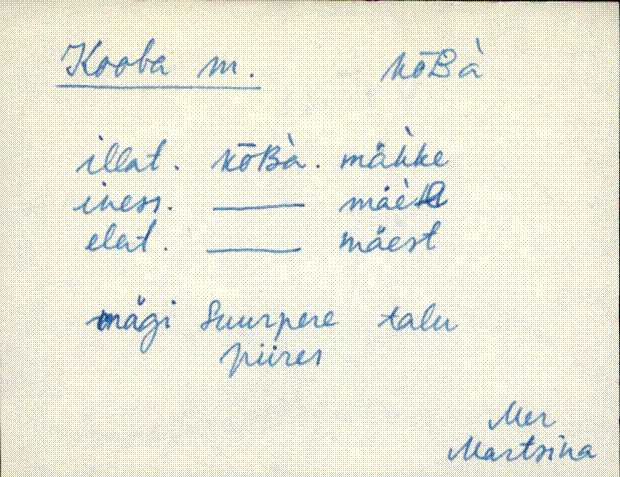 Kooba m. kōBà
illat. kōBà. mäkke
iness. ——— 
elat. ——— mäest
mägi Suurpere talu
piires
Mer
Martsina